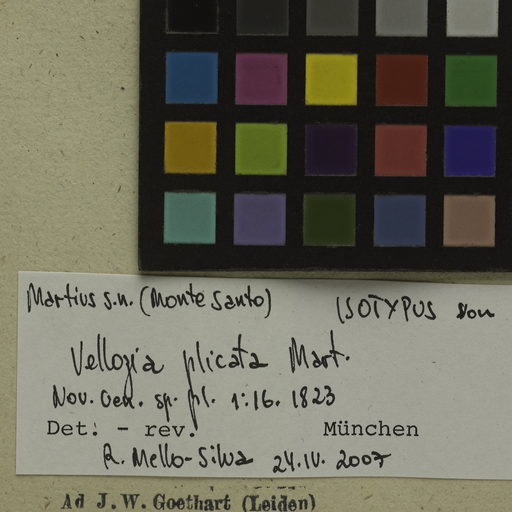 Martius s.n. (Monte Santo) ISOTYPUS von
Vellozia plicata Mart.
Nov. Gen. sp. pl. 1:16. 1823
Det: - rev. München
R. Mello-Silva 24.IV. 2007
Ad J. W. Goethart (Leiden)